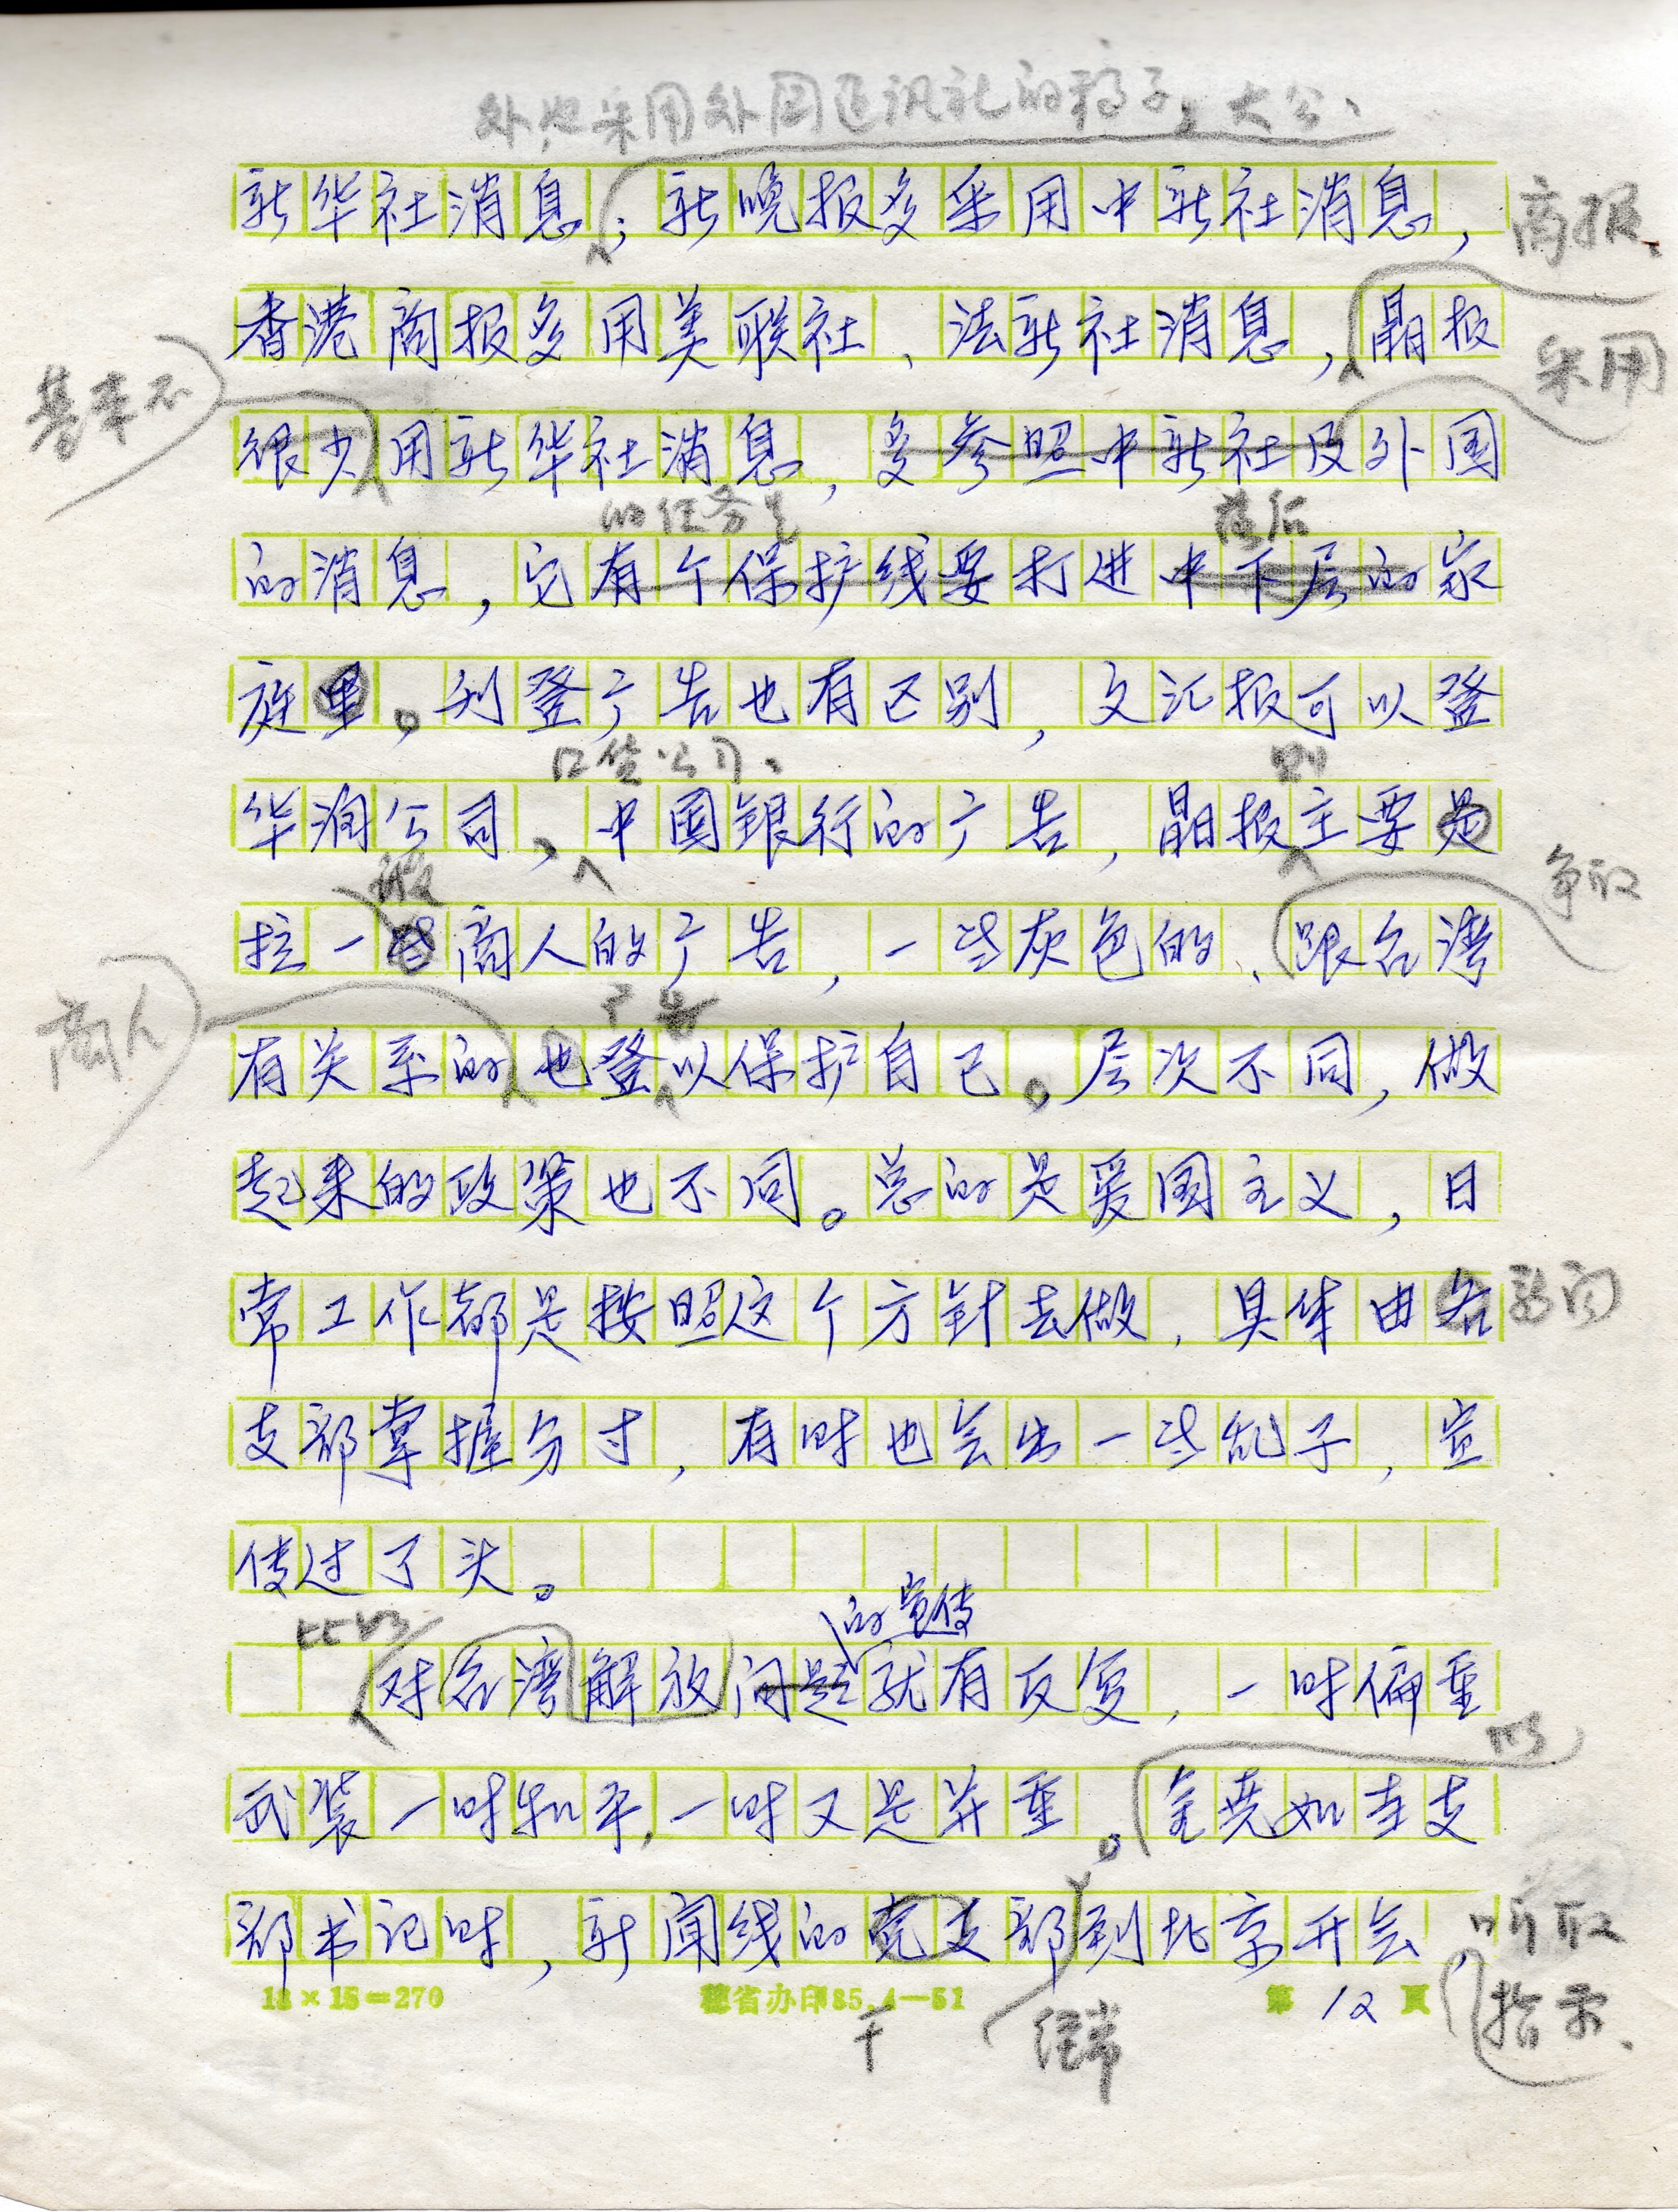 外,也采用外国通讯社的稿子,大公、
新华社消息;新晚报多采用中新社消息,
商报、
香港商报多用美联社、法新社消息,晶报
采用
基本不
很少用新华社消息,多参照中新社及外国
的任务是
落后
的消息,它有个保护线要打进中下层的家
庭里。刊登广告也有区别,文汇报可以登
则
华润公司、中国银行的广告,晶报主要是
争取
一般
拉一些商人的广告,一些灰色的、跟台湾
商人
广告
有关系的也登以保护自己。层次不同,做
起来的政策也不同。总的是爱国主义,日
常工作都是按照这个方针去做,具体由各
新闻
支部掌握分寸,有时也会出一些乱子,宣
传过了头。
比如
的宣传
对台湾解放问题就有反复,一时偏重
武装一时和平,一时又是并重。金尧如当支
部书记时,新闻线的党支部到北京开会,
听取
指示、
18×15=270
省办印85.4—51
第12页
干
经常